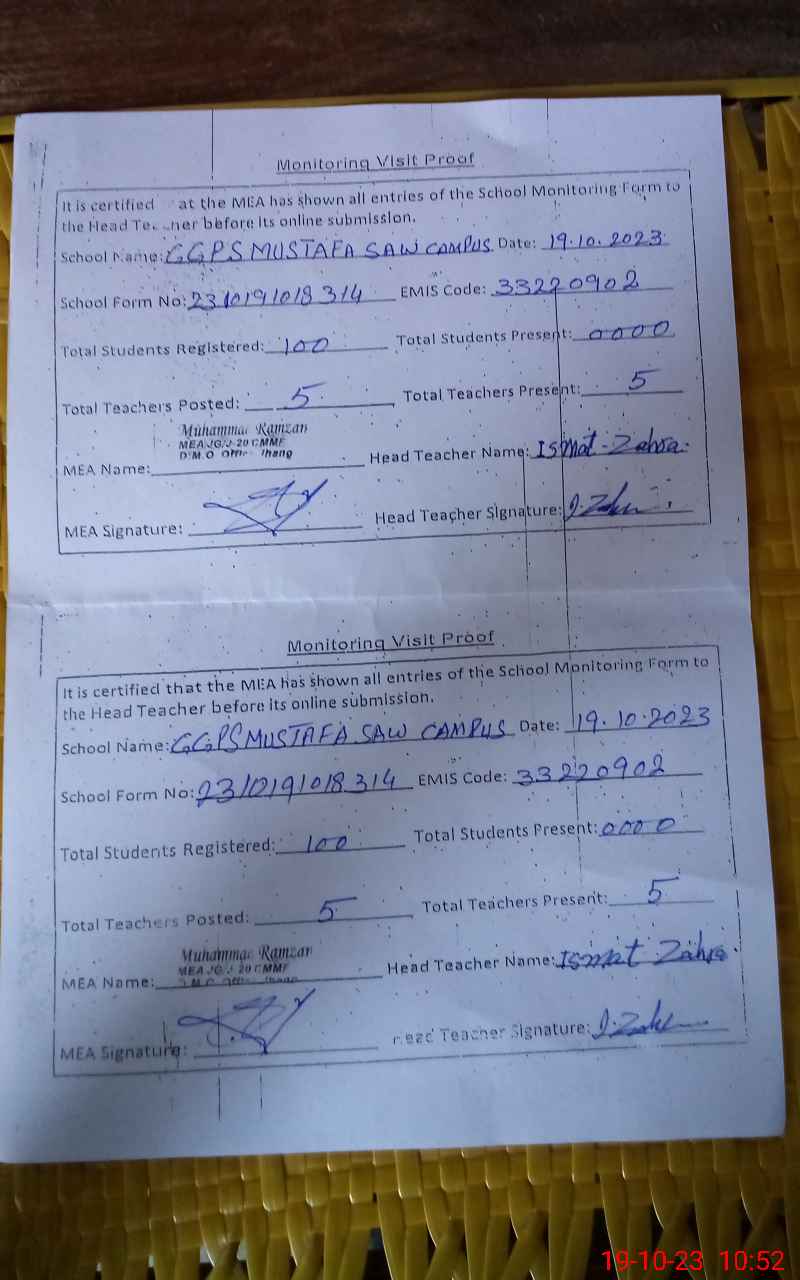 Monitoring Visit Proof
It is certified at the MEA has shown all entries of the School Monitoring Form to
the Head before its online submission.
School Name: GGPS MUSTAFA SAW CAMPUS Date: 19.10.2023
School Form No: 2310191018314 EMIS Code: 33220902
Total Students Registered: 100 Total Students Present: 0000
Total Teachers Posted: 5 Total Teachers Present: 5
Muhammad Ramzan
D.M.O. Office Jhang
MEA Name: Head Teacher Name: Ismat Zahra
MEA Signature: Head Teacher Signature:
Monitoring Visit Proof
It is certified that the MEA has shown all entries of the School Monitoring Form to
the Head Teacher before its online submission.
School Name: GGPS MUSTAFA SAW CAMPUS Date: 19.10.2023
School Form No: 2310191018314 EMIS Code: 33220902
Total Students Registered: 100 Total Students Present: 0000
Total Teachers Posted: 5 Total Teachers Present: 5
Muhammad Ramzan
MEA Name: Head Teacher Name: Ismat Zahra
MEA Signature: Head Teacher Signature:
19-10-23 10:52